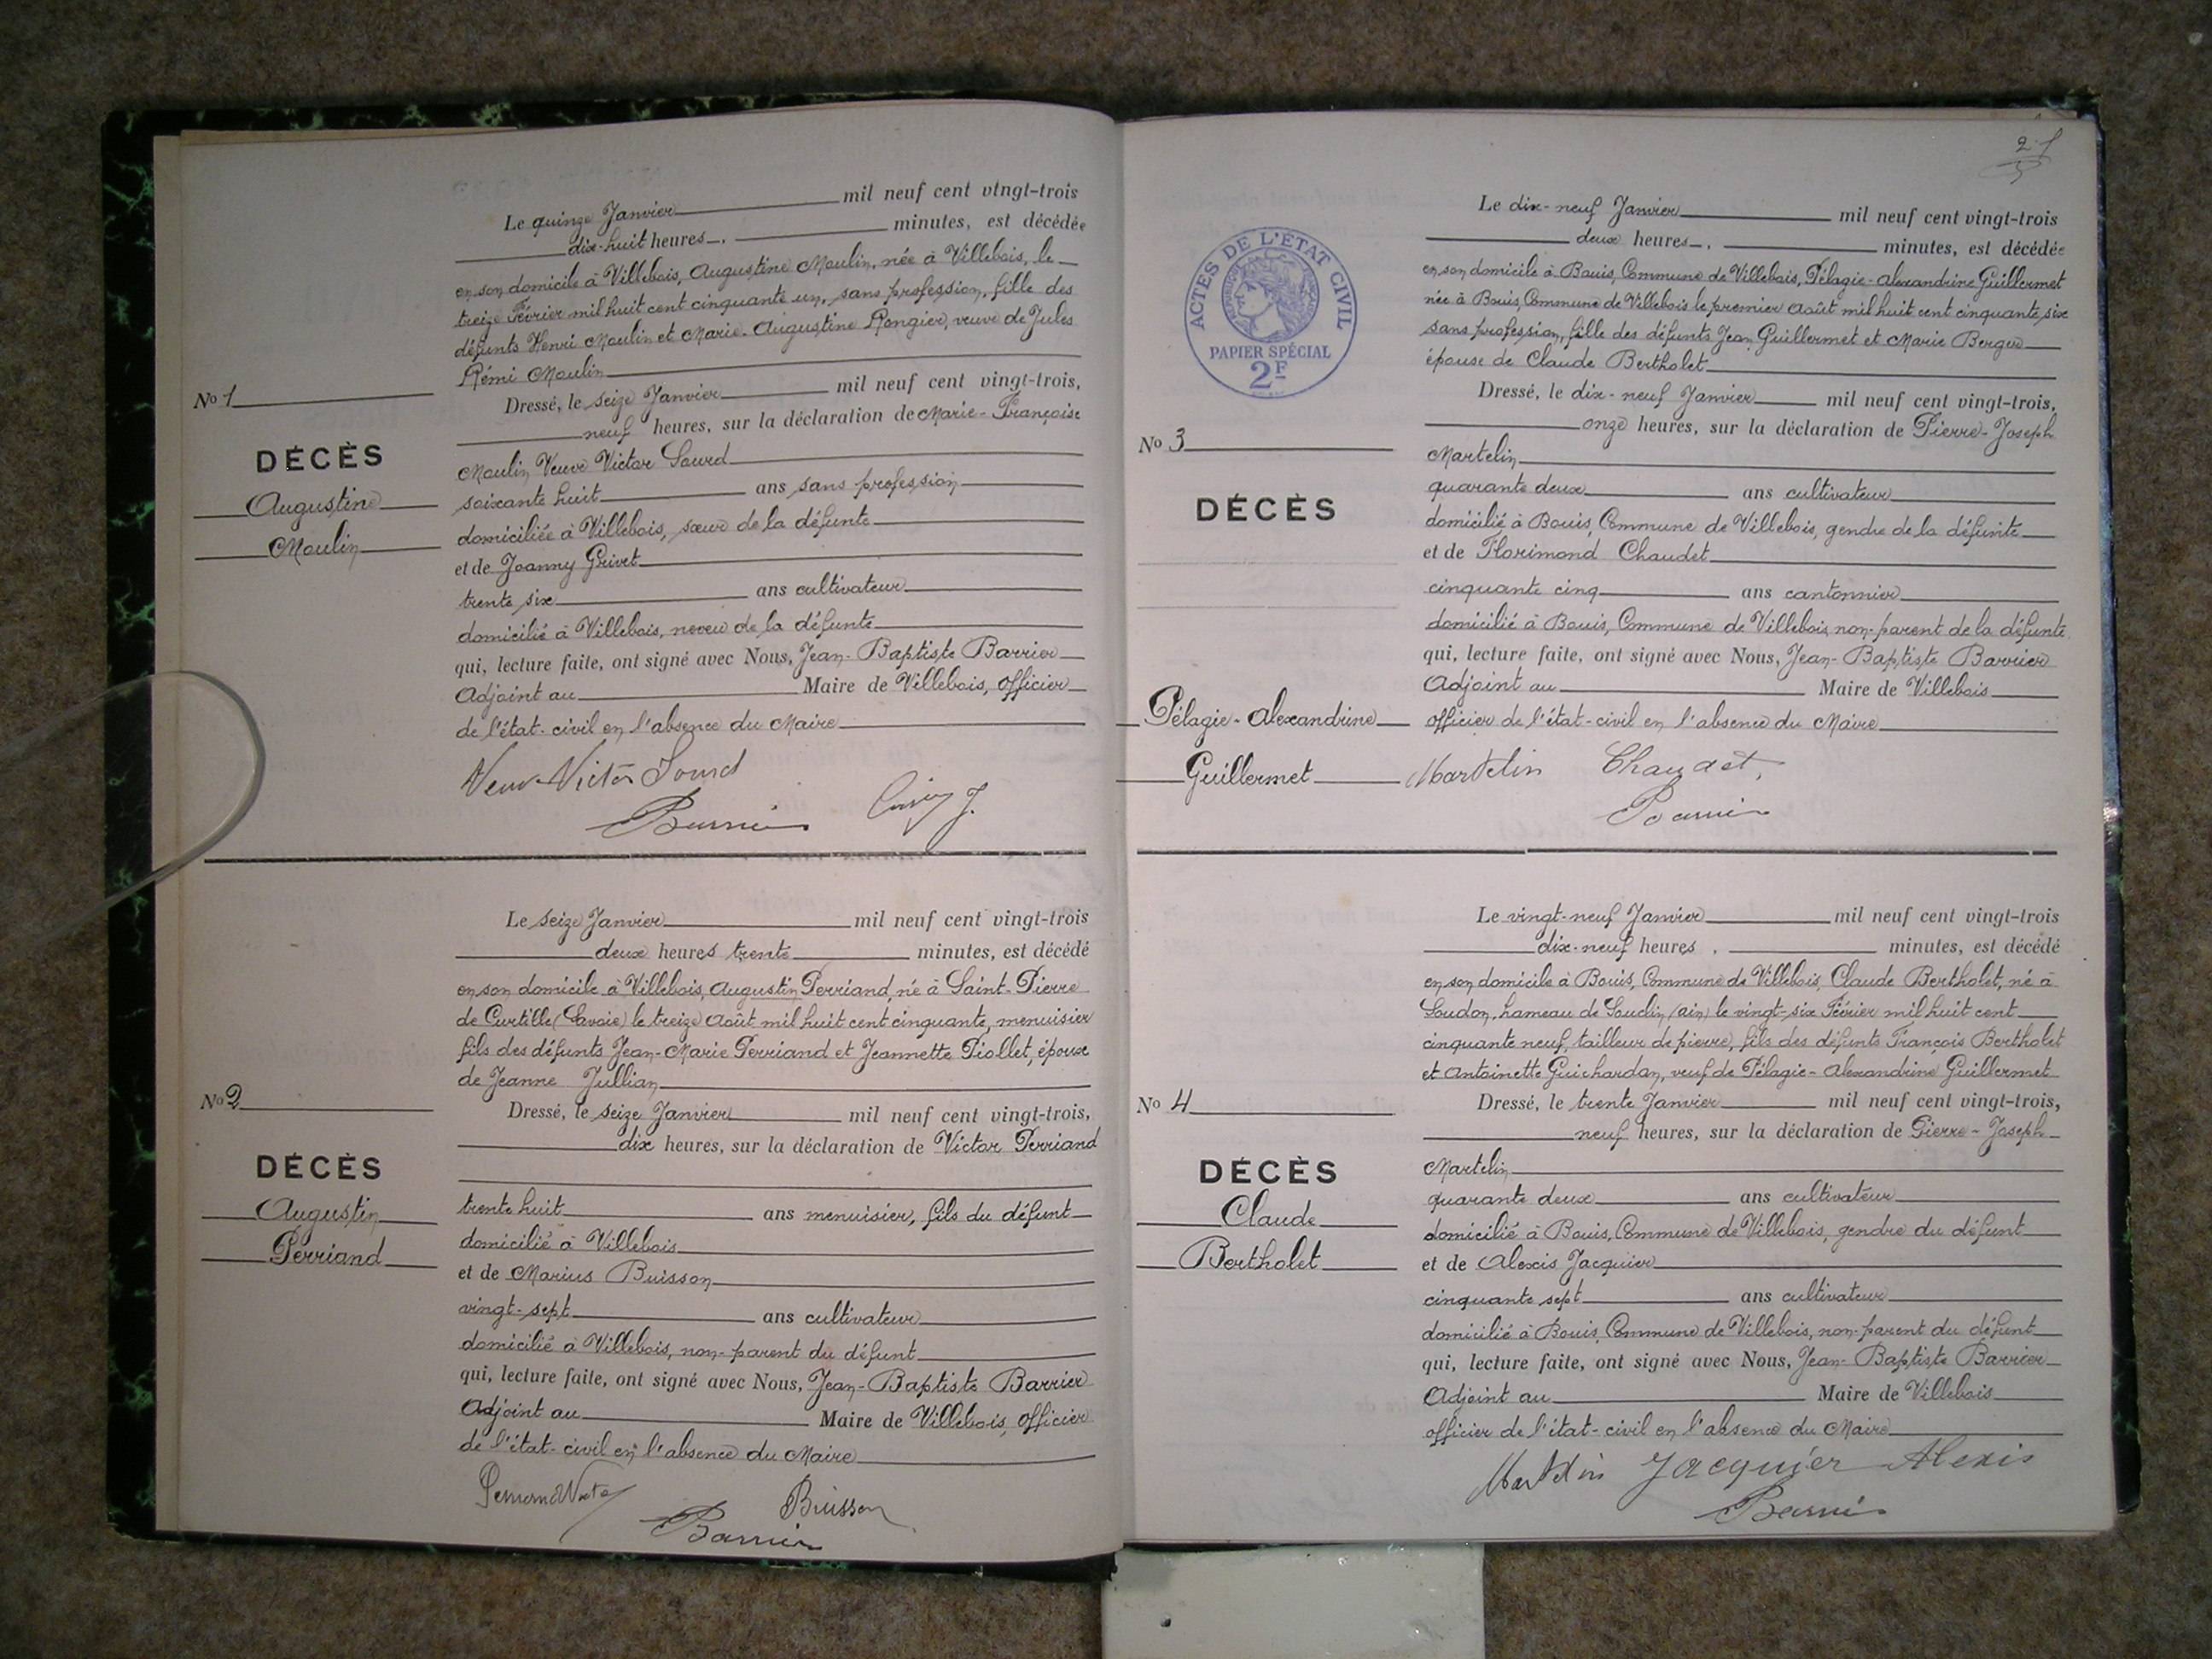 Le quinze Janvier mil neuf cent vingt-trois
dix-huit heures, minutes, est décédée
en son domicile à Villebois, Augustine Moulin, née à Villebois, le
treize Février mil huit cent cinquante un, sans profession, fille des
défunts Henri Moulin et Marie-Augustine Rongier, veuve de Jules
Rémi Moulin
No 1
Dressé, le seize Janvier mil neuf cent vingt-trois,
neuf heures, sur la déclaration de Marie-Françoise
DÉCÈS
Augustine
Moulin
Moulin Veuve Victor Sourd
soixante huit ans sans profession
domiciliée à Villebois, sœur de la défunte
et de Joanny Grivet
trente six ans cultivateur
domicilié à Villebois, neveu de la défunte
qui, lecture faite, ont signé avec Nous, Jean-Baptiste Barrier
Adjoint au Maire de Villebois, officier
de l'état-civil en l'absence du Maire
Veuve Victor Sourd
Barrier
Le seize Janvier mil neuf cent vingt-trois
deux heures trente minutes, est décédé
en son domicile à Villebois, Augustin Perriand, né à Saint-Pierre
de Curtille (Savoie) le treize Août mil huit cent cinquante, menuisier
fils des défunts Jean-Marie Perriand et Jeannette Piollet, époux
de Jeanne Jullian
No 2
Dressé, le seize Janvier mil neuf cent vingt-trois,
dix heures, sur la déclaration de Victor Perriand
DÉCÈS
Augustin
Perriand
trente huit ans menuisier, fils du défunt
domicilié à Villebois
et de Marius Buisson
vingt-sept ans cultivateur
domicilié à Villebois, non-parent du défunt
qui, lecture faite, ont signé avec Nous, Jean-Baptiste Barrier
Adjoint au Maire de Villebois, officier
de l'état-civil en l'absence du Maire
Buisson
Barrier
2
ACTES DE L'ÉTAT CIVIL
PAPIER SPÉCIAL
2F
Le dix-neuf Janvier mil neuf cent vingt-trois
deux heures, minutes, est décédée
en son domicile à Bouis, Commune de Villebois, Pélagie-Alexandrine Guillermet
née à Bouis, Commune de Villebois le premier Août mil huit cent cinquante six
sans profession, fille des défunts Jean Guillermet et Marie Berger
épouse de Claude Bertholet
Dressé, le dix-neuf Janvier mil neuf cent vingt-trois,
onze heures, sur la déclaration de Pierre-Joseph
No 3
Martelin
DÉCÈS
quarante deux ans cultivateur
domicilié à Bouis, Commune de Villebois, gendre de la défunte
et de Florimond Chaudet
cinquante cinq ans cantonnier
domicilié à Bouis, Commune de Villebois, non-parent de la défunte
qui, lecture faite, ont signé avec Nous, Jean-Baptiste Barrier
Adjoint au Maire de Villebois
Pélagie-Alexandrine
Guillermet
officier de l'état-civil en l'absence du Maire
Martelin Chaudet,
Barrier
Le vingt-neuf Janvier mil neuf cent vingt-trois
dix-neuf heures, minutes, est décédé
en son domicile à Bouis, Commune de Villebois, Claude Bertholet, né à
Soudon, hameau de Souclin (Ain) le vingt-six Février mil huit cent
cinquante neuf, tailleur de pierre, fils des défunts François Bertholet
et Antoinette Guichardan, veuf de Pélagie-Alexandrine Guillermet
No 4
Dressé, le trente Janvier mil neuf cent vingt-trois,
neuf heures, sur la déclaration de Pierre-Joseph
DÉCÈS
Claude
Bertholet
Martelin
quarante deux ans cultivateur
domicilié à Bouis, Commune de Villebois, gendre du défunt
et de Alexis Jacquier
cinquante sept ans cultivateur
domicilié à Bouis, Commune de Villebois, non-parent du défunt
qui, lecture faite, ont signé avec Nous, Jean-Baptiste Barrier
Adjoint au Maire de Villebois
officier de l'état-civil en l'absence du Maire
Martelin Jacquier Alexis
Barrier